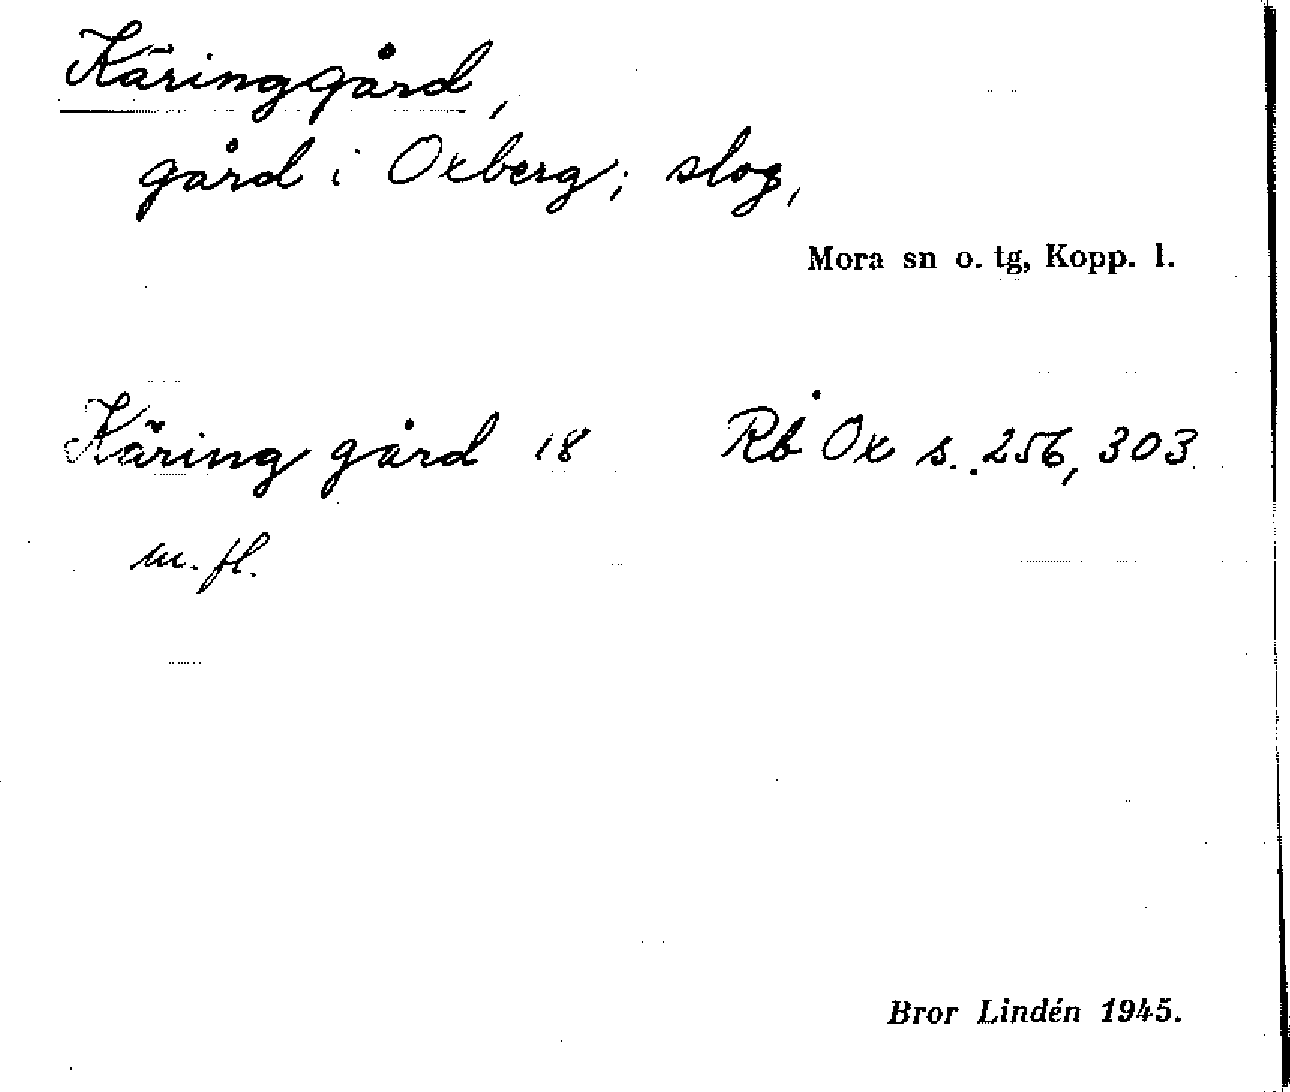 Käringgård,
gård i Oxberg; slog,
Mora sn o. tg, Kopp. l.
Käring gård 18 Rb Ox s. 256, 303
m. fl.
Bror Lindén 1945.